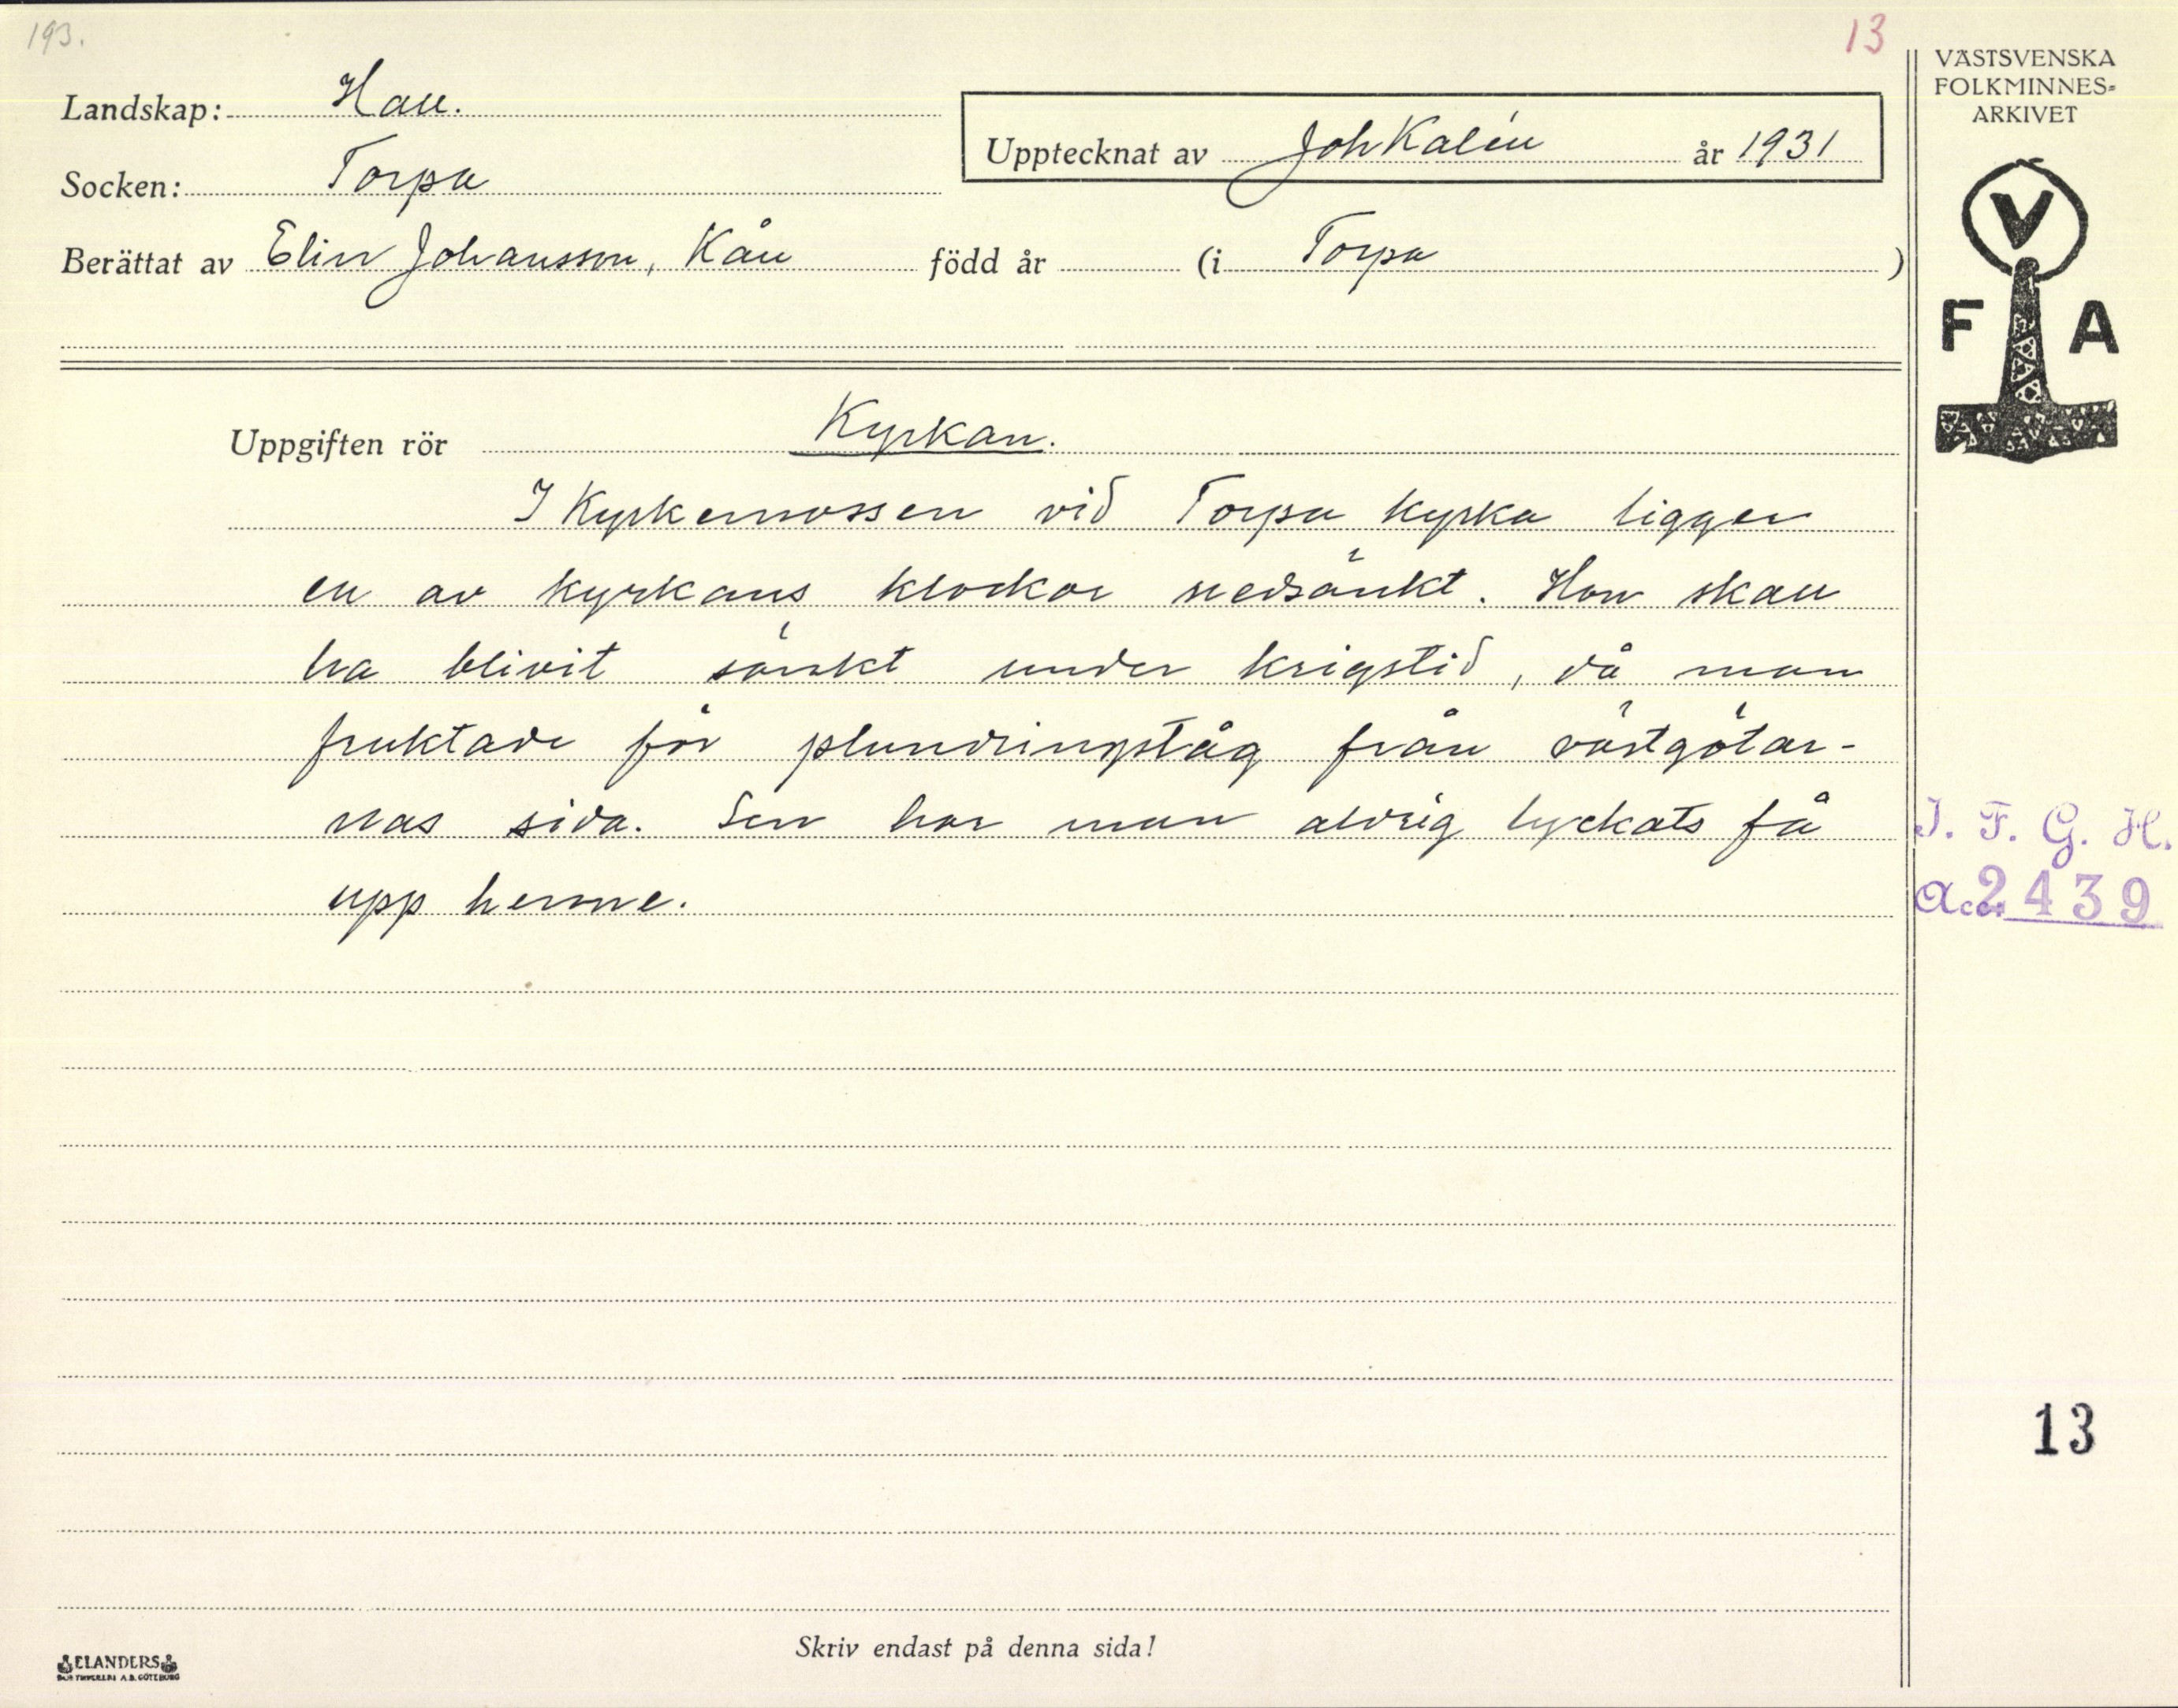 193.
13
VÄSTSVENSKA
FOLKMINNES-
ARKIVET
Landskap: Hall.
Upptecknat av Joh Kalén år 1931
Socken: Torpa
Berättat av Elin Johansson, Kån född år (i Torpa )
V
F A
Uppgiften rör Kyrkan.
I Kyrkemossen vid Torpa kyrka ligger
en av kyrkans klockor nedsänkt. Hon skall
ha blivit sänkt under krigstid, då man
fruktade för plundringståg från västgötar-
nas sida. Sen har man aldrig lyckats få
upp henne.
I. F. G. H.
Acc. 2439
13
Skriv endast på denna sida!
ELANDERS